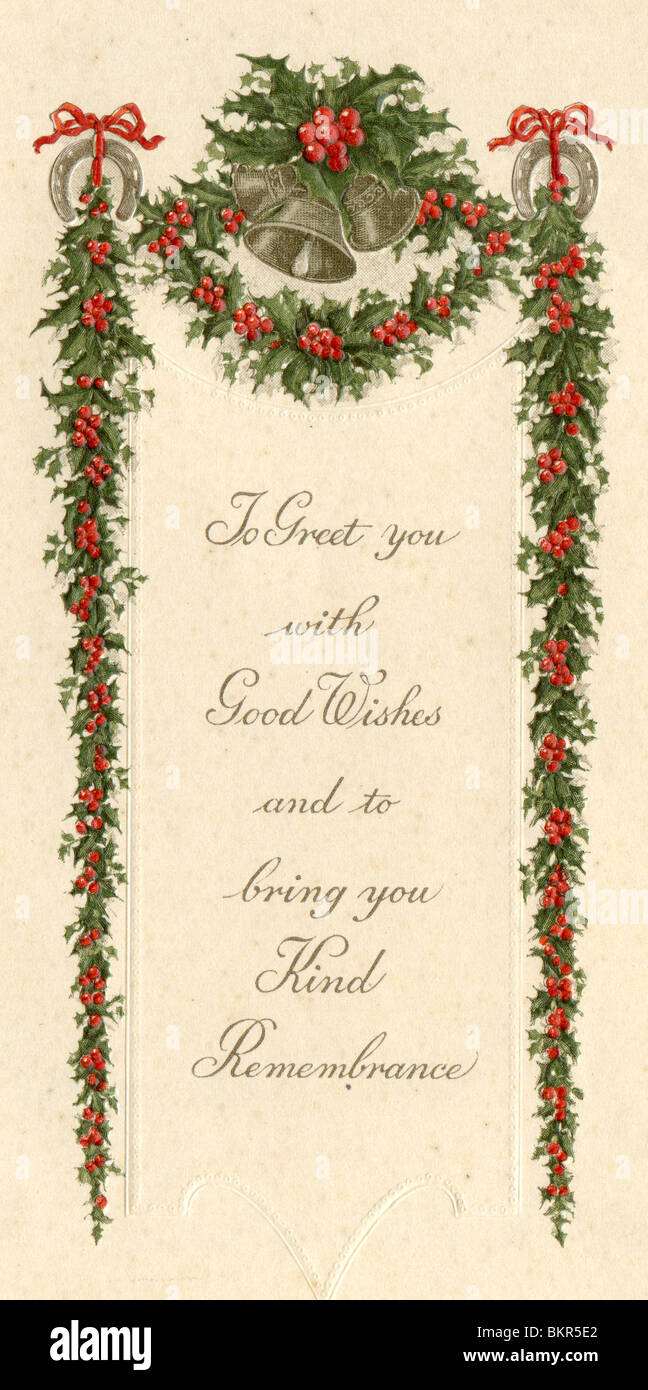 To Greet you
with
Good Wishes
and to
bring you
Kind
Remembrance
alamy
Image ID: BKR5E2
www.alamy.com